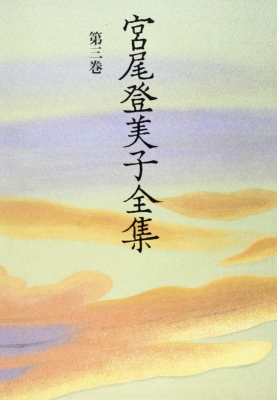 宮尾登美子全集
第三巻